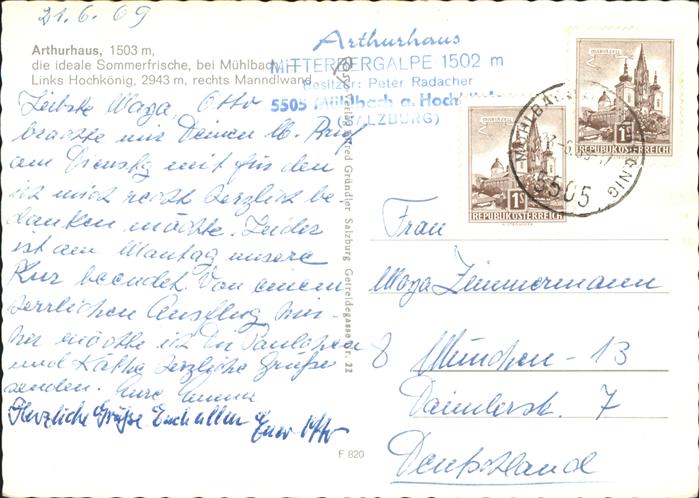 21.6.69
Arthurhaus, 1503 m,
die ideale Sommerfrische, bei Mühlbach
Links Hochkönig, 2943 m, rechts Manndlwand
Arthurhaus
MITTERBERGALPE 1502 m
Besitzer: Peter Radacher
5505 Mühlbach a. Hochkönig
(SALZBURG)
Liebste Maga, Otto
brachte mir Deinen lb. Brief
am Dienstag mit für den
ich mich recht herzlich be-
danken möchte. Leider
ist am Montag unsere
Kur beendet. Von einem
herrlichen Ausflug hier-
her möchte ich Dir Paulchen
und Käthe herzliche Grüße
senden. Eure
Herzliche Grüße Euch allen Euer Otto
Alfred Gründler Salzburg Getreidegasse Nr. 22
F 820
MARIAZELL
1S
REPUBLIK ÖSTERREICH
MARIAZELL
1S
REPUBLIK ÖSTERREICH
5505
Frau
Maga Zimmermann
8 München - 13
Daimlerstr. 7
Deutschland